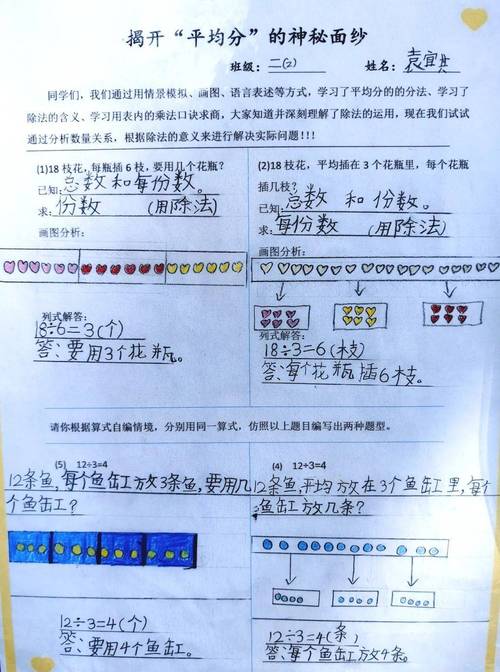 揭开“平均分”的神秘面纱
班级：二(2) 姓名：袁宜其
同学们，我们通过用情景模拟、画图、语言表述等方式，学习了平均分的的分法、学习了
除法的含义、学习用表内的乘法口诀求商，大家知道并深刻理解了除法的运用，现在我们试试
通过分析数量关系，根据除法的意义来进行解决实际问题！！！
(1)18 枝花，每瓶插 6 枝，要用几个花瓶？
已知：总数和每份数。
求：份数 (用除法)
画图分析：
列式解答：
18÷6=3(个)
答：要用3个花瓶。
(2)18 枝花，平均插在 3 个花瓶里，每个花瓶
插几枝？
已知：总数 和 份数。
求：每份数 (用除法)
画图分析：
列式解答：
18÷3=6(枝)
答：每个花瓶插6枝。
请你根据算式自编情境，分别用同一算式，仿照以上题目编写出两种题型。
(5) 12÷3=4
12条鱼，每个鱼缸工放3条鱼，要用几
个鱼缸工？
12÷3=4(个)
答：要用4个鱼缸工。
(4) 12÷3=4
12条鱼，平均放在3个鱼缸工里，每个
鱼缸工放几条？
12÷3=4(条)
答：每个鱼缸工放4条。